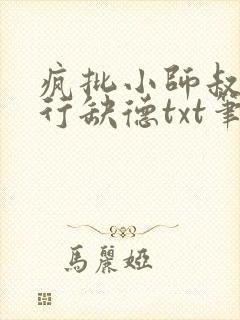 疯批小師叔
行缺德txt筆
馬麗婭